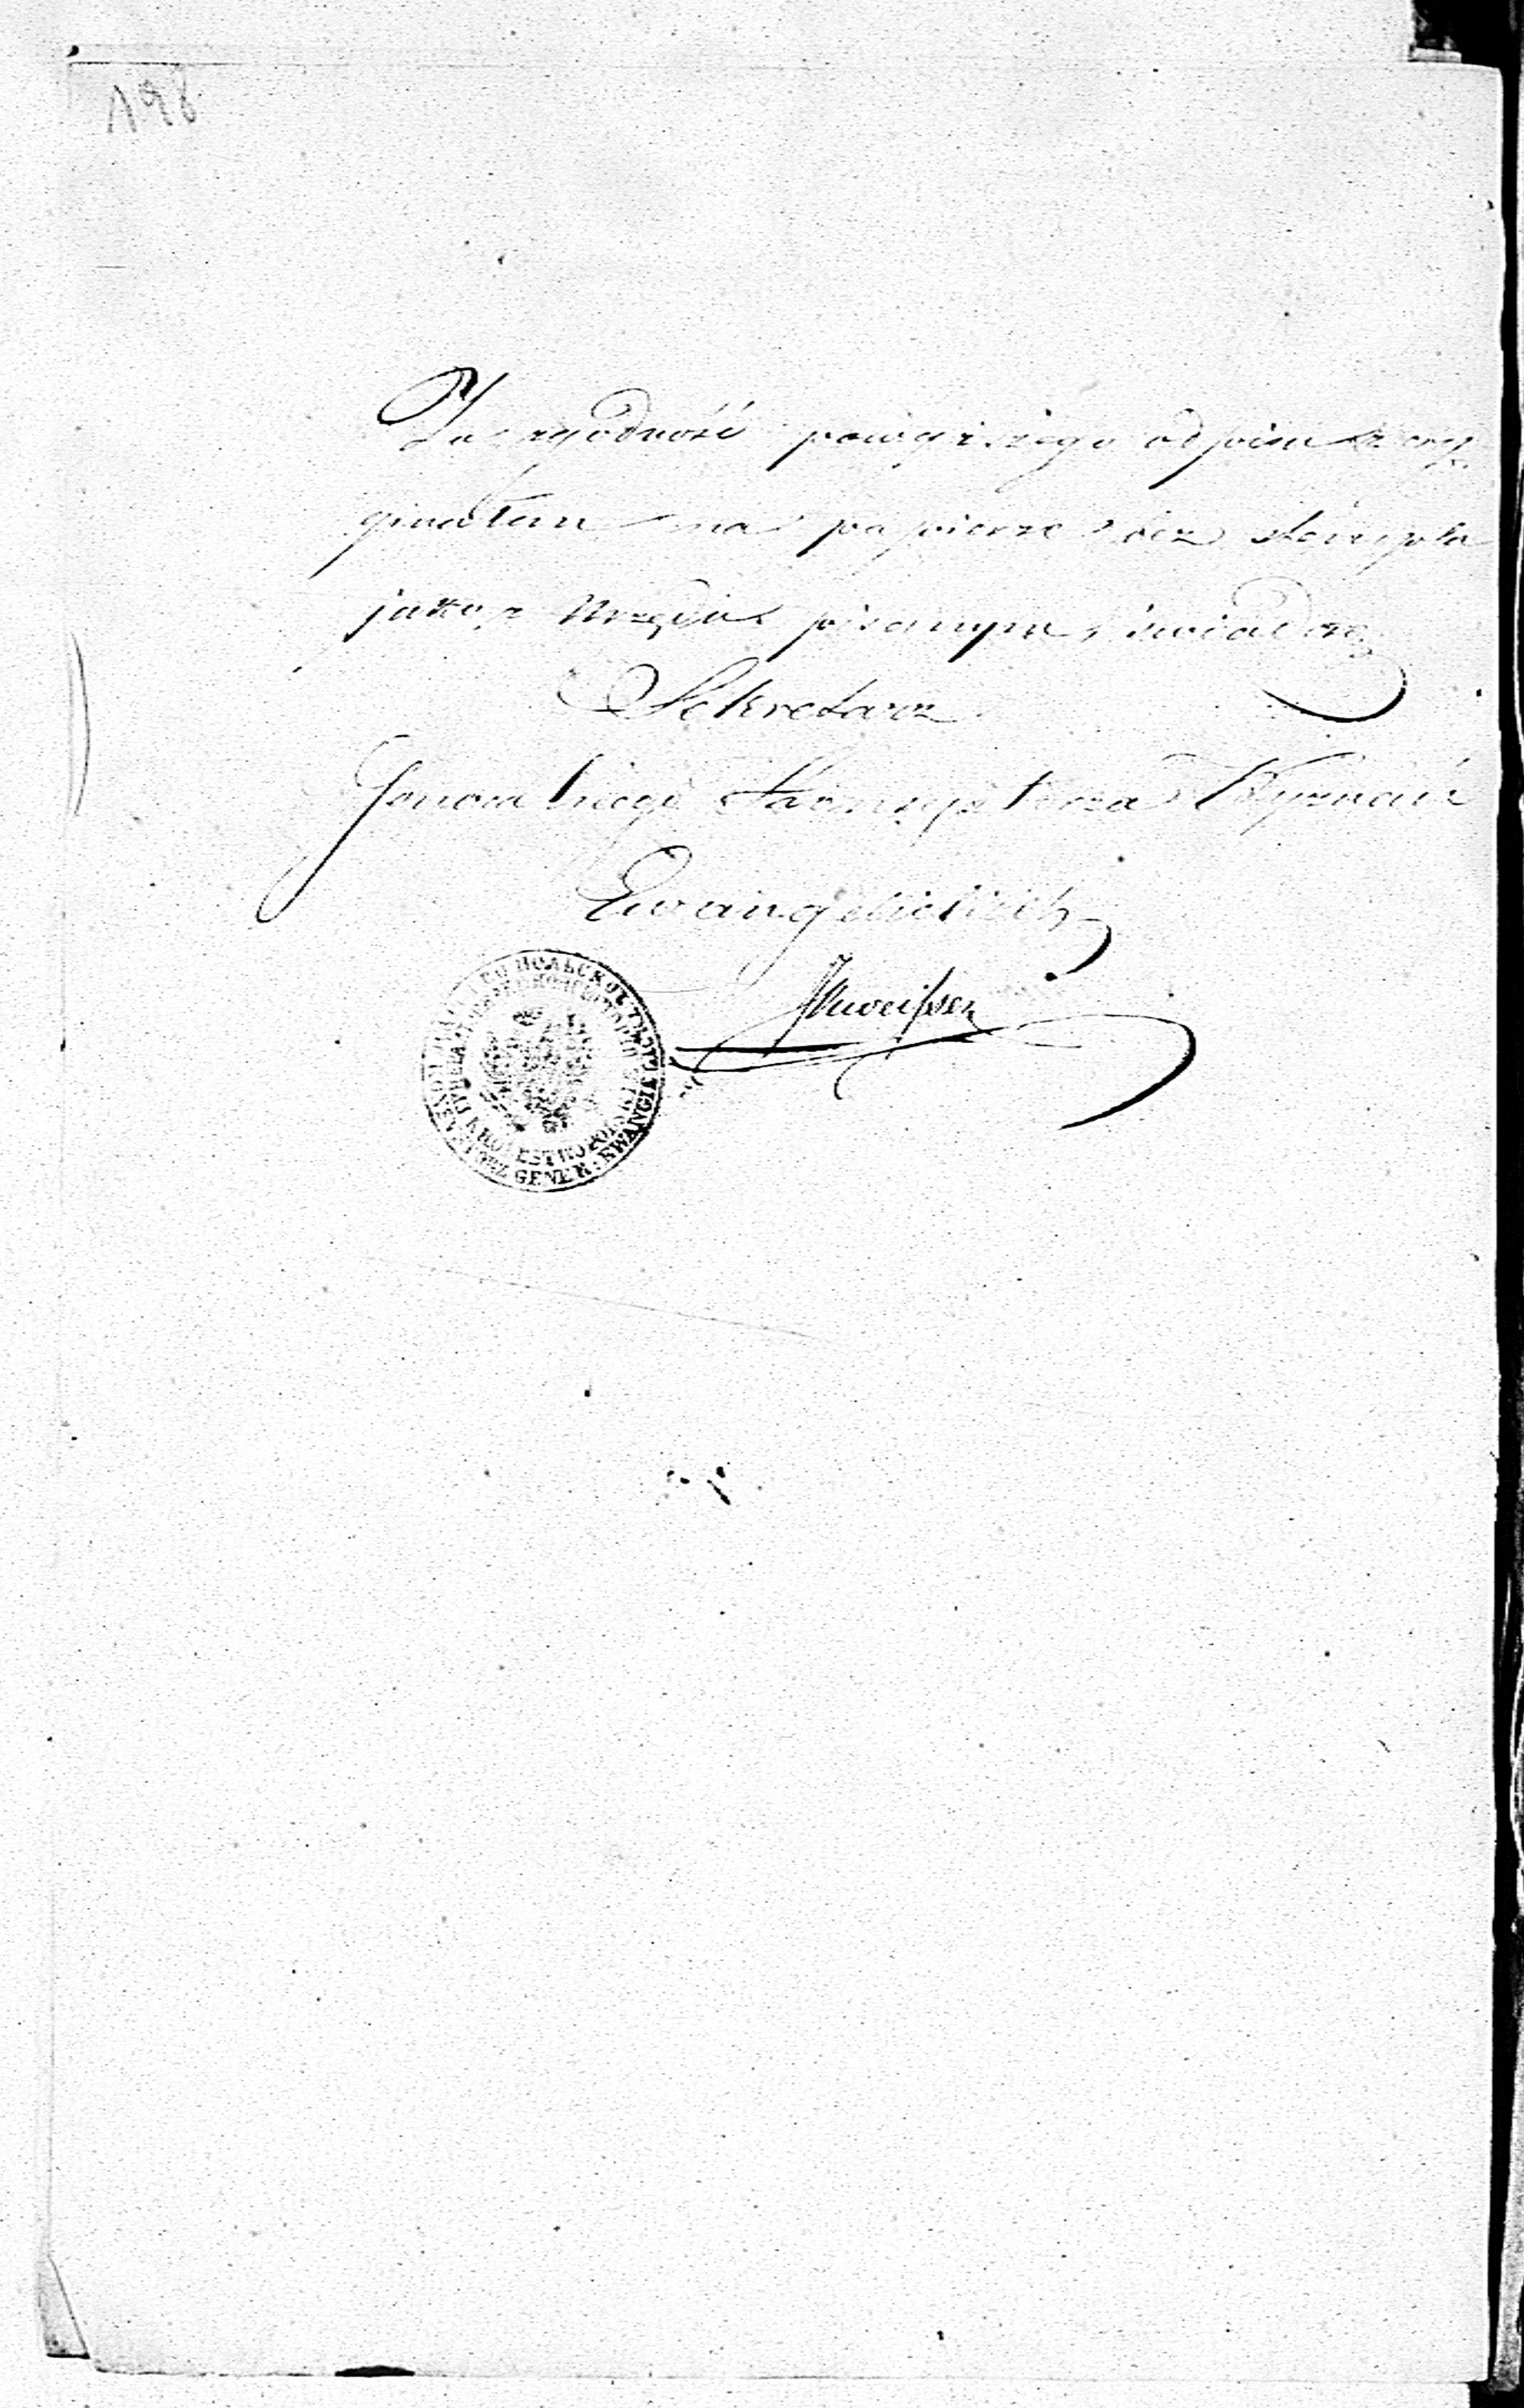 198
Za zgodność powyższego odpisu z ory-
ginałem na papierze bez stempla
jako z Urzędu pisanym, świadczę
Sekretarz
Generalnego Konsystorza Wyznań
Ewangelickich
GENER: EWANGIE